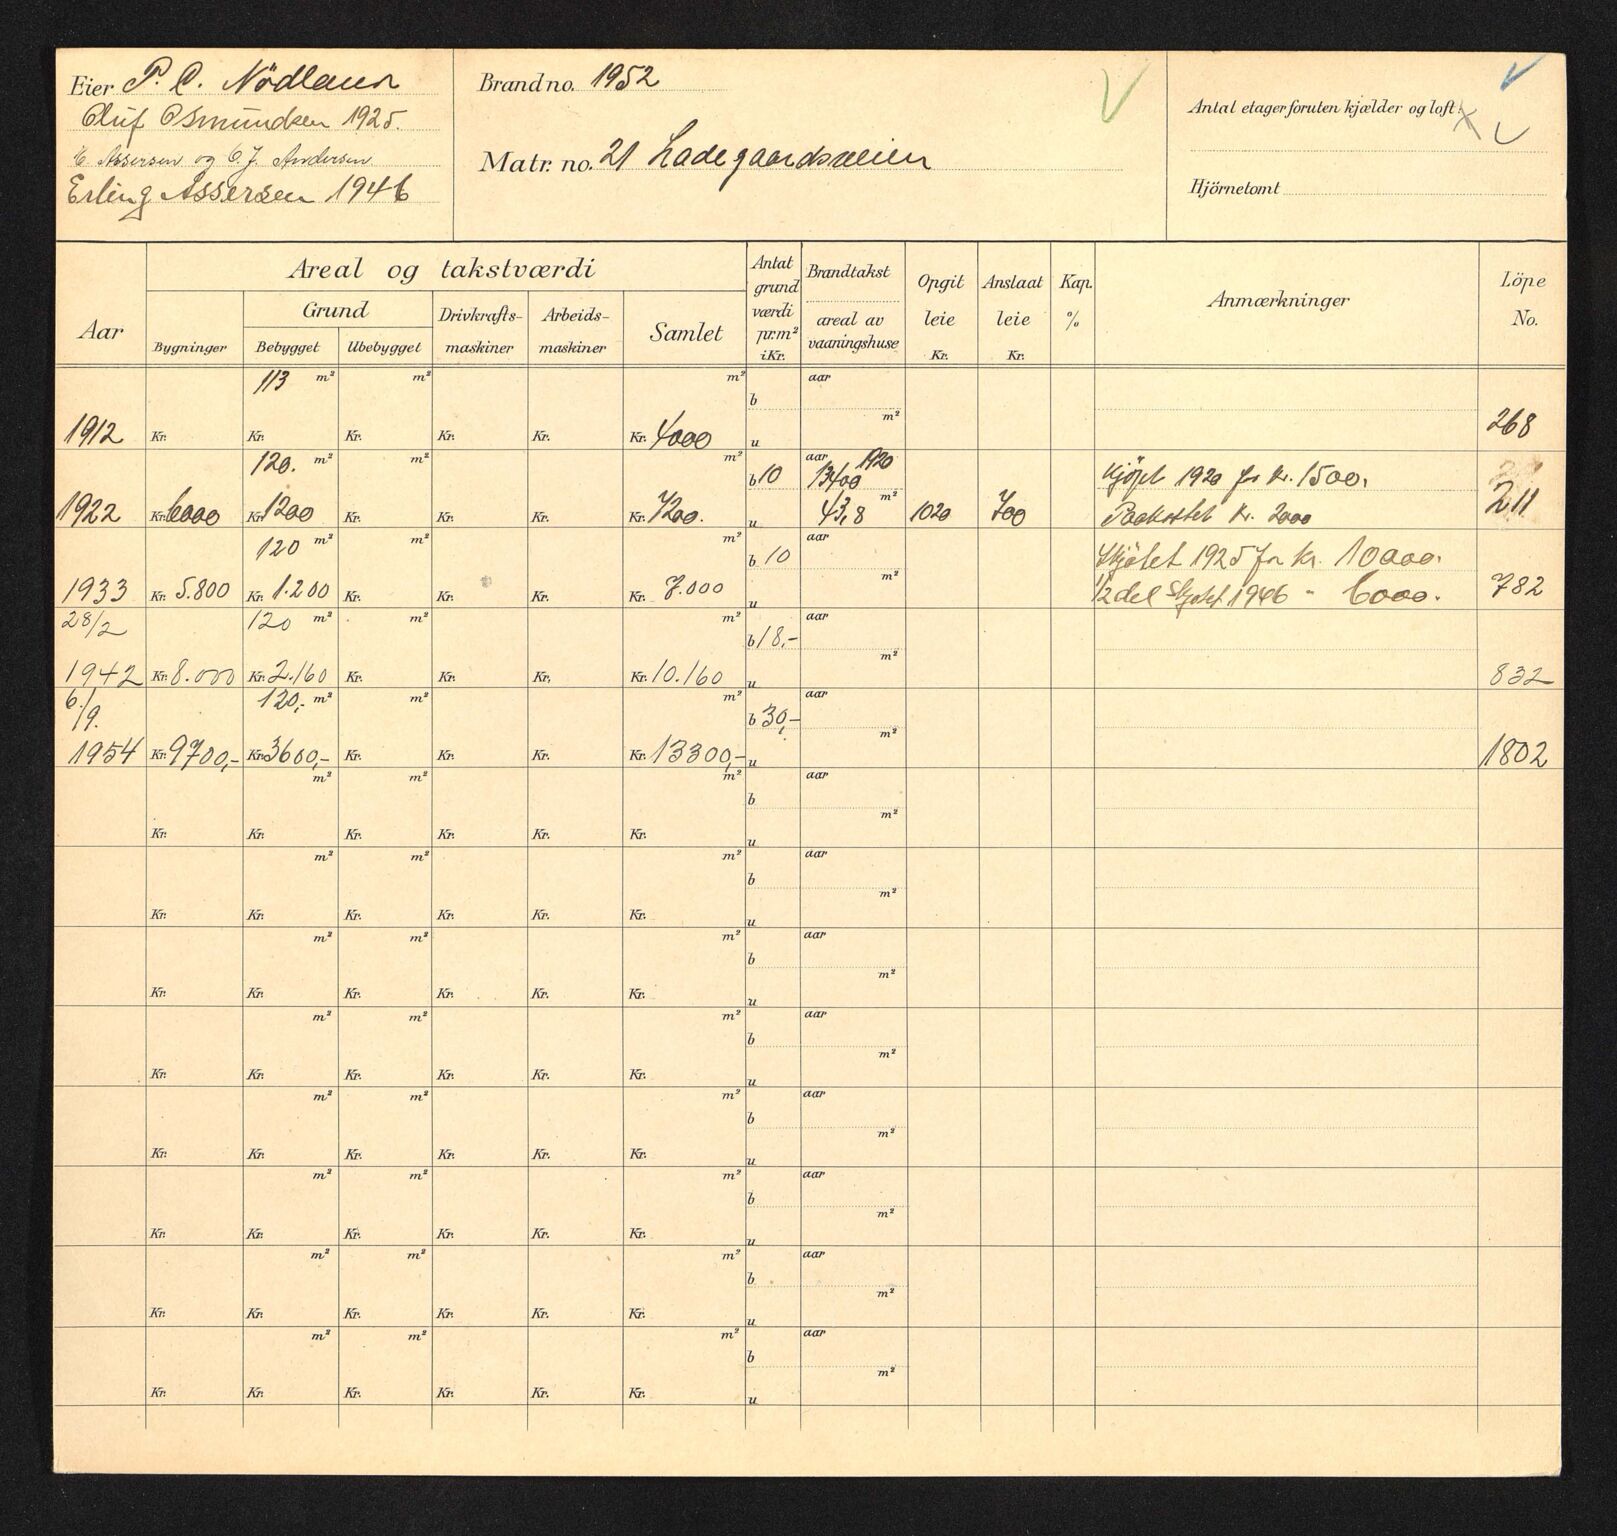 Eier P. C. Nödland
Oluf Osmundsen 1925.
E. Assersen og C. J. Andersen
Erling Assersen 1946
Brand no. 1952
Matr. no. 21 Ladegaardsveien
Antal etager foruten kjælder og loft
Hjörnetomt
Aar
Areal og takstværdi
Grund
Bygninger
Bebygget
Ubebygget
Drivkrafts-
maskiner
Arbeids-
maskiner
Samlet
Antat
grund
værdi
pr.m²
i Kr.
Brandtakst
areal av
vaaningshuse
Opgit
leie
Kr.
Anslaat
leie
Kr.
Kap.
%
Anmærkninger
Löpe
No.
113 m² m² m² aar
b
m²
1912 Kr. Kr. Kr. Kr. Kr. Kr. 4000 u 268
120. m² m² m² b 10 aar 1920
13400 Kjöpt 1920 for kr. 1500.
m²
1922 Kr. 6000 Kr. 1200 Kr. Kr. Kr. Kr. 7200. u 43,8 1020 700 Paakostet kr. 2000 211
120 m² m² m² b 10 aar Skjötet 1925 for kr. 10000.
m²
1933 Kr. 5.800 Kr. 1.200 Kr. Kr. Kr. Kr. 7.000 u 1/2 del Skjötet 1946 " 6000. 782
28/2 120 m² m² m² b 18,- aar
m²
1942 Kr. 8.000 Kr. 2.160 Kr. Kr. Kr. Kr. 10.160 u 832
6/9. 120,- m² m² m² b 30,- aar
m²
1954 Kr. 9700,- Kr. 3600,- Kr. Kr. Kr. Kr. 13300,- u 1802
m² m² m² aar
b
m²
Kr. Kr. Kr. Kr. Kr. Kr. u
m² m² m² aar
b
m²
Kr. Kr. Kr. Kr. Kr. Kr. u
m² m² m² aar
b
m²
Kr. Kr. Kr. Kr. Kr. Kr. u
m² m² m² aar
b
m²
Kr. Kr. Kr. Kr. Kr. Kr. u
m² m² m² aar
b
m²
Kr. Kr. Kr. Kr. Kr. Kr. u
m² m² m² aar
b
m²
Kr. Kr. Kr. Kr. Kr. Kr. u
m² m² m² aar
b
m²
Kr. Kr. Kr. Kr. Kr. Kr. u
m² m² m² aar
b
m²
Kr. Kr. Kr. Kr. Kr. Kr. u